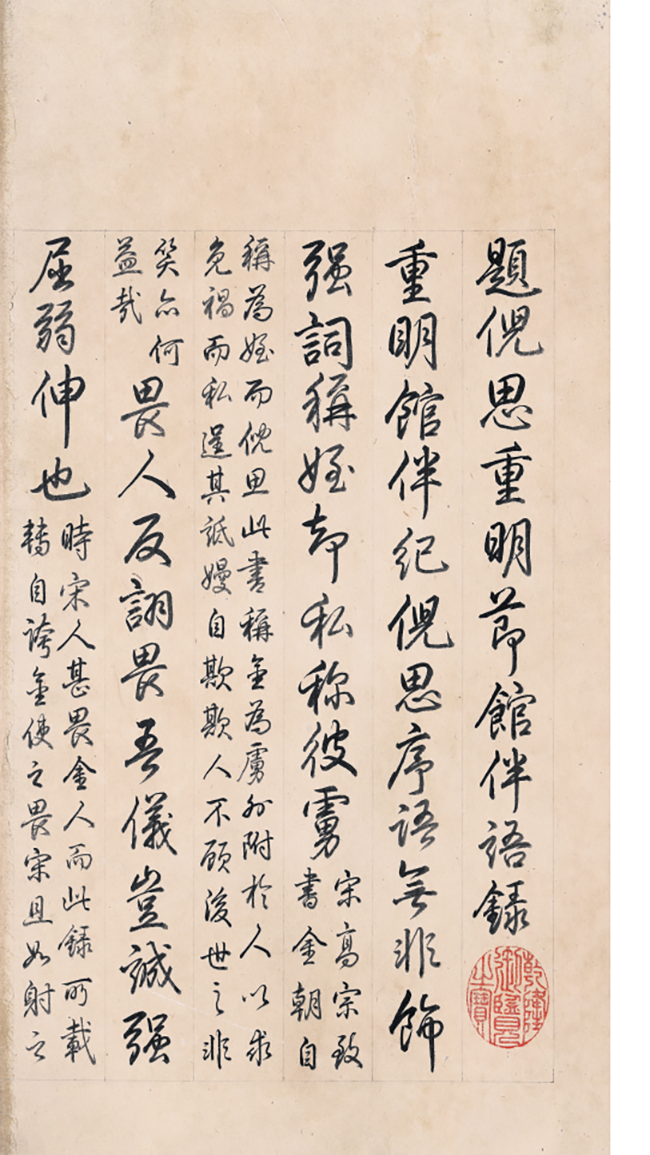 題倪思重明節館伴語録
乾隆御覽之寶
重明館伴紀倪思序語無非飾
强詞稱姪却私称彼虜
宋高宗致
書金朝自
稱為姪而倪思此書稱金為虜外附於人以求
免禍而私逞其詆嫚自欺欺人不顧後世之非
笑亦何
益哉
畏人反詡畏吾儀豈誠强
屈弱伸也
時宋人甚畏金人而此録所載
轉自誇金使之畏宋且如射之